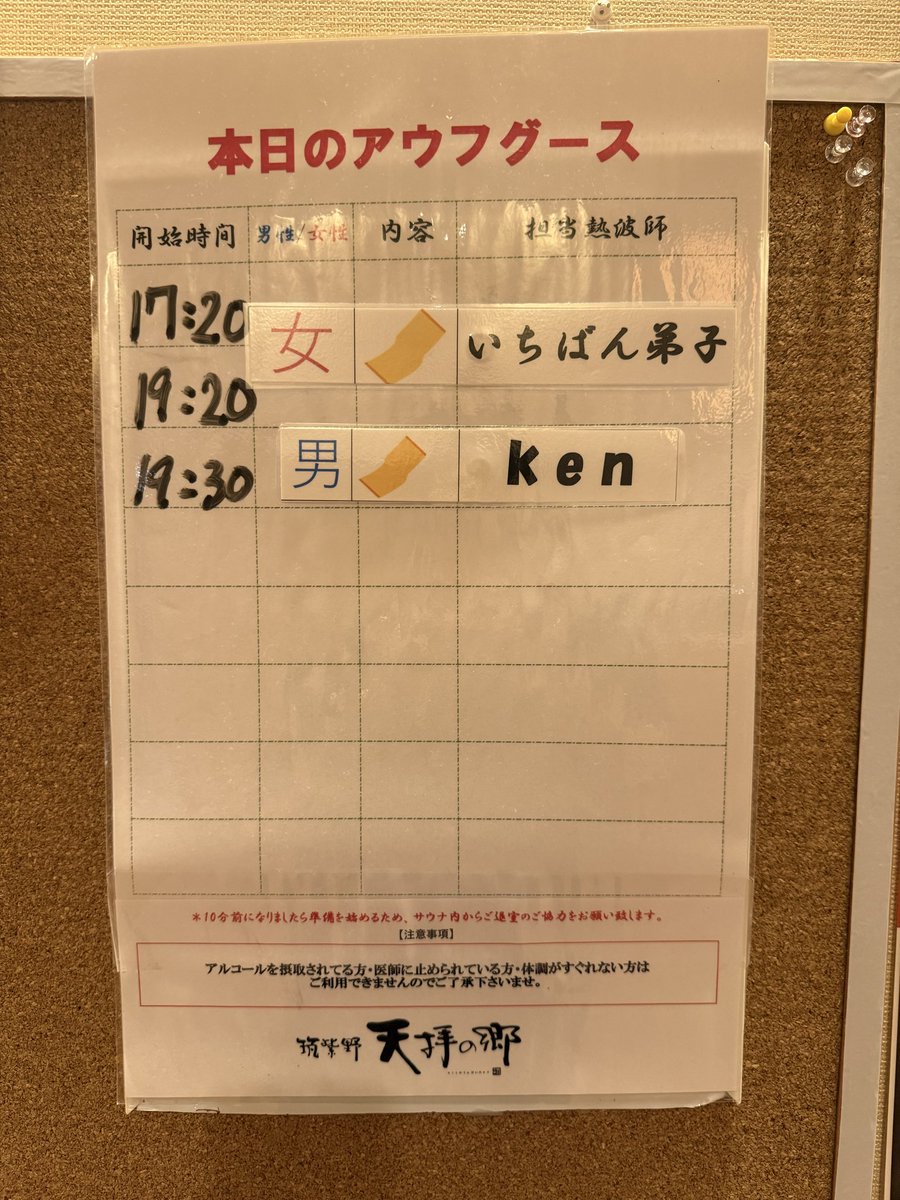 本日のアウフグース
開始時間 男性/女性 内容 担当熱波師
17:20
女 いちばん弟子
19:20
19:30 男 ken
*10分前になりましたら準備を始めるため、サウナ内からご退室のご協力をお願い致します。
【注意事項】
アルコールを摂取されてる方・医師に止められている方・体調がすぐれない方は
ご利用できませんのでご了承下さいませ。
筑紫野 天拝の郷